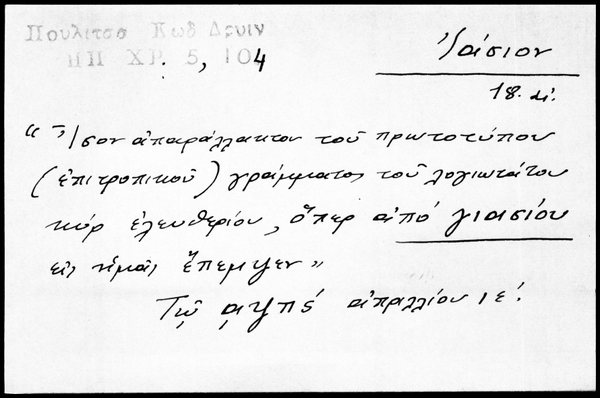 Πουλίτσα Κωδ Δρυιν
ΗΠ ΧΡ. 5, 104
Ἰάσιον
18. αἰ.
"Ἴσον ἀπαράλλακτον τοῦ πρωτοτύπου
(ἐπιτροπικοῦ) γράμματος τοῦ λογιωτάτου
κύρ ἐλευθερίου, ὅπερ ἀπό γιασίου
εἰς ἡμᾶς ἔπεμψεν"
Τῷ αψπς́ ἀπριλλίου ιέ.